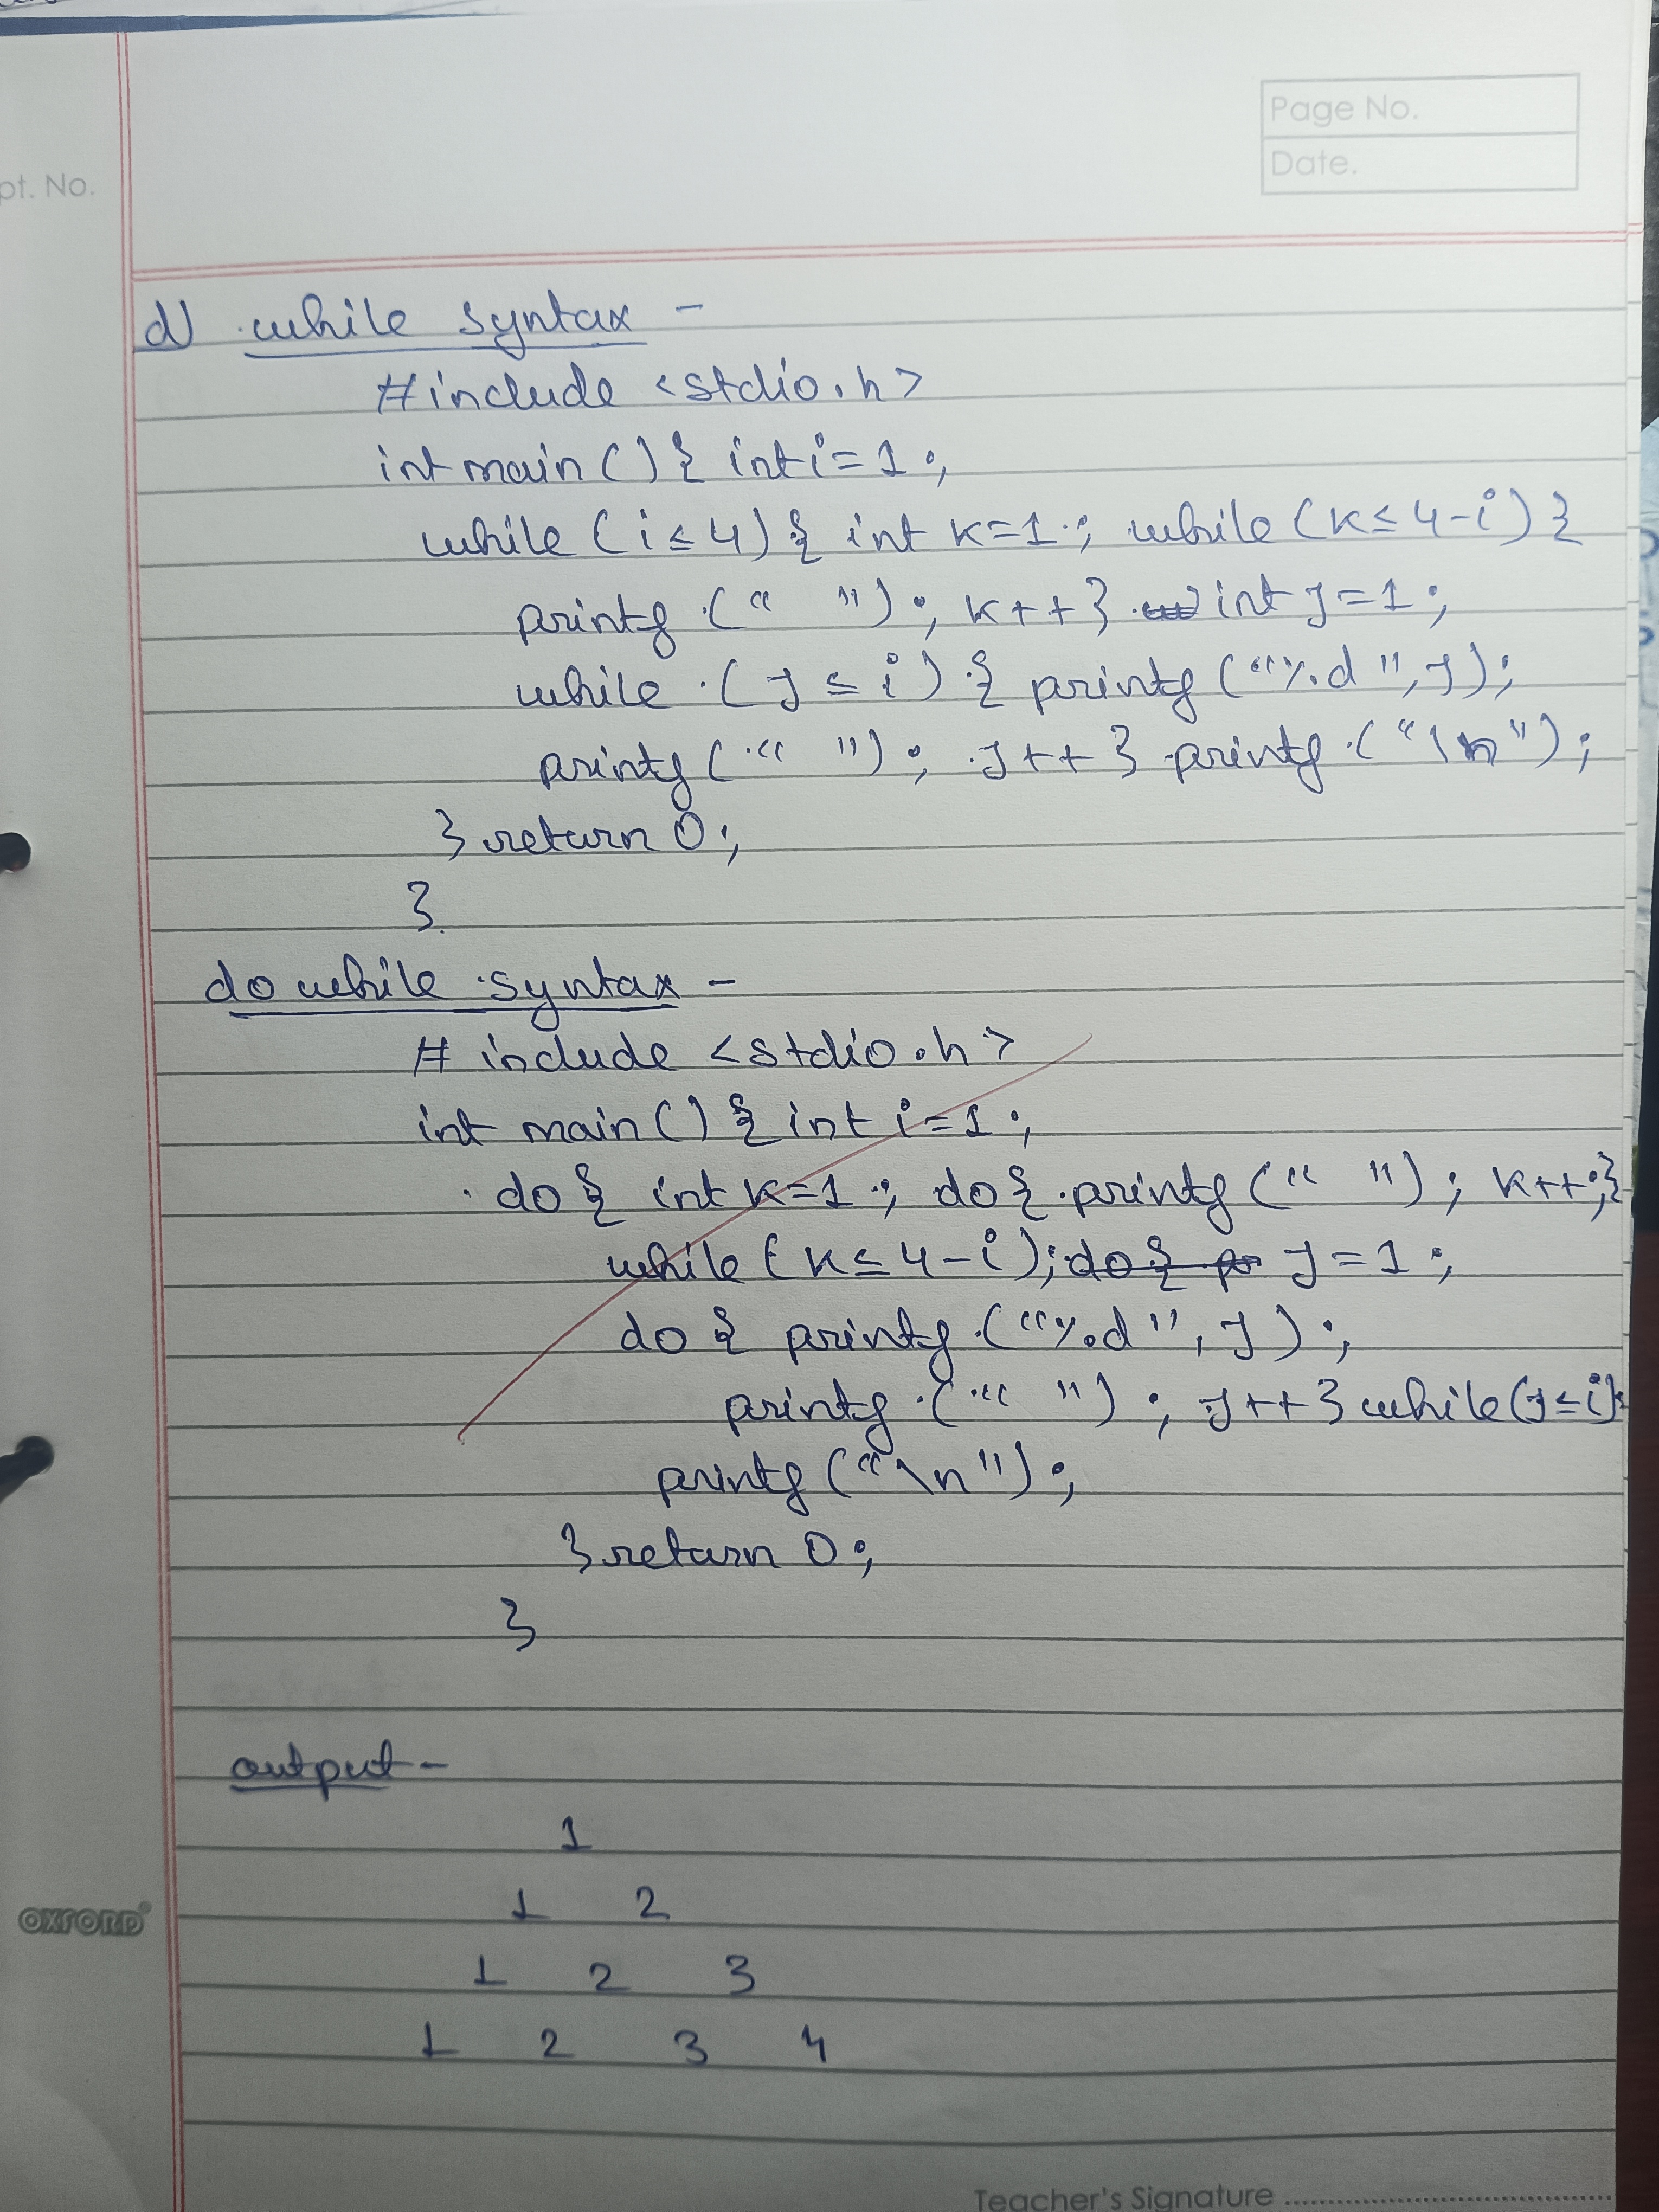 Page No.
Date.
pt. No.
d) while syntax -
#include <stdio.h>
int main () { int i = 1 ;
while ( i ≤ 4) { int k=1 ; while (k ≤ 4-i) {
printf (" ") ; k++ } int j = 1 ;
while ( j ≤ i ) { printf ("%d ", j);
printf (" ") ; j++ } printf ("\n") ;
} return 0 ;
}
do while syntax -
# include <stdio.h>
int main () { int i = 1 ;
do { int k=1 ; do { printf (" ") ; k++;}
while (k ≤ 4-i); do { j = 1 ;
do { printf ("%d", j) ;
printf (" ") ; j++ } while (j ≤ i);
printf ("\n") ;
} return 0 ;
}
output -
1
1 2
1 2 3
1 2 3 4
OXFORD
Teacher's Signature